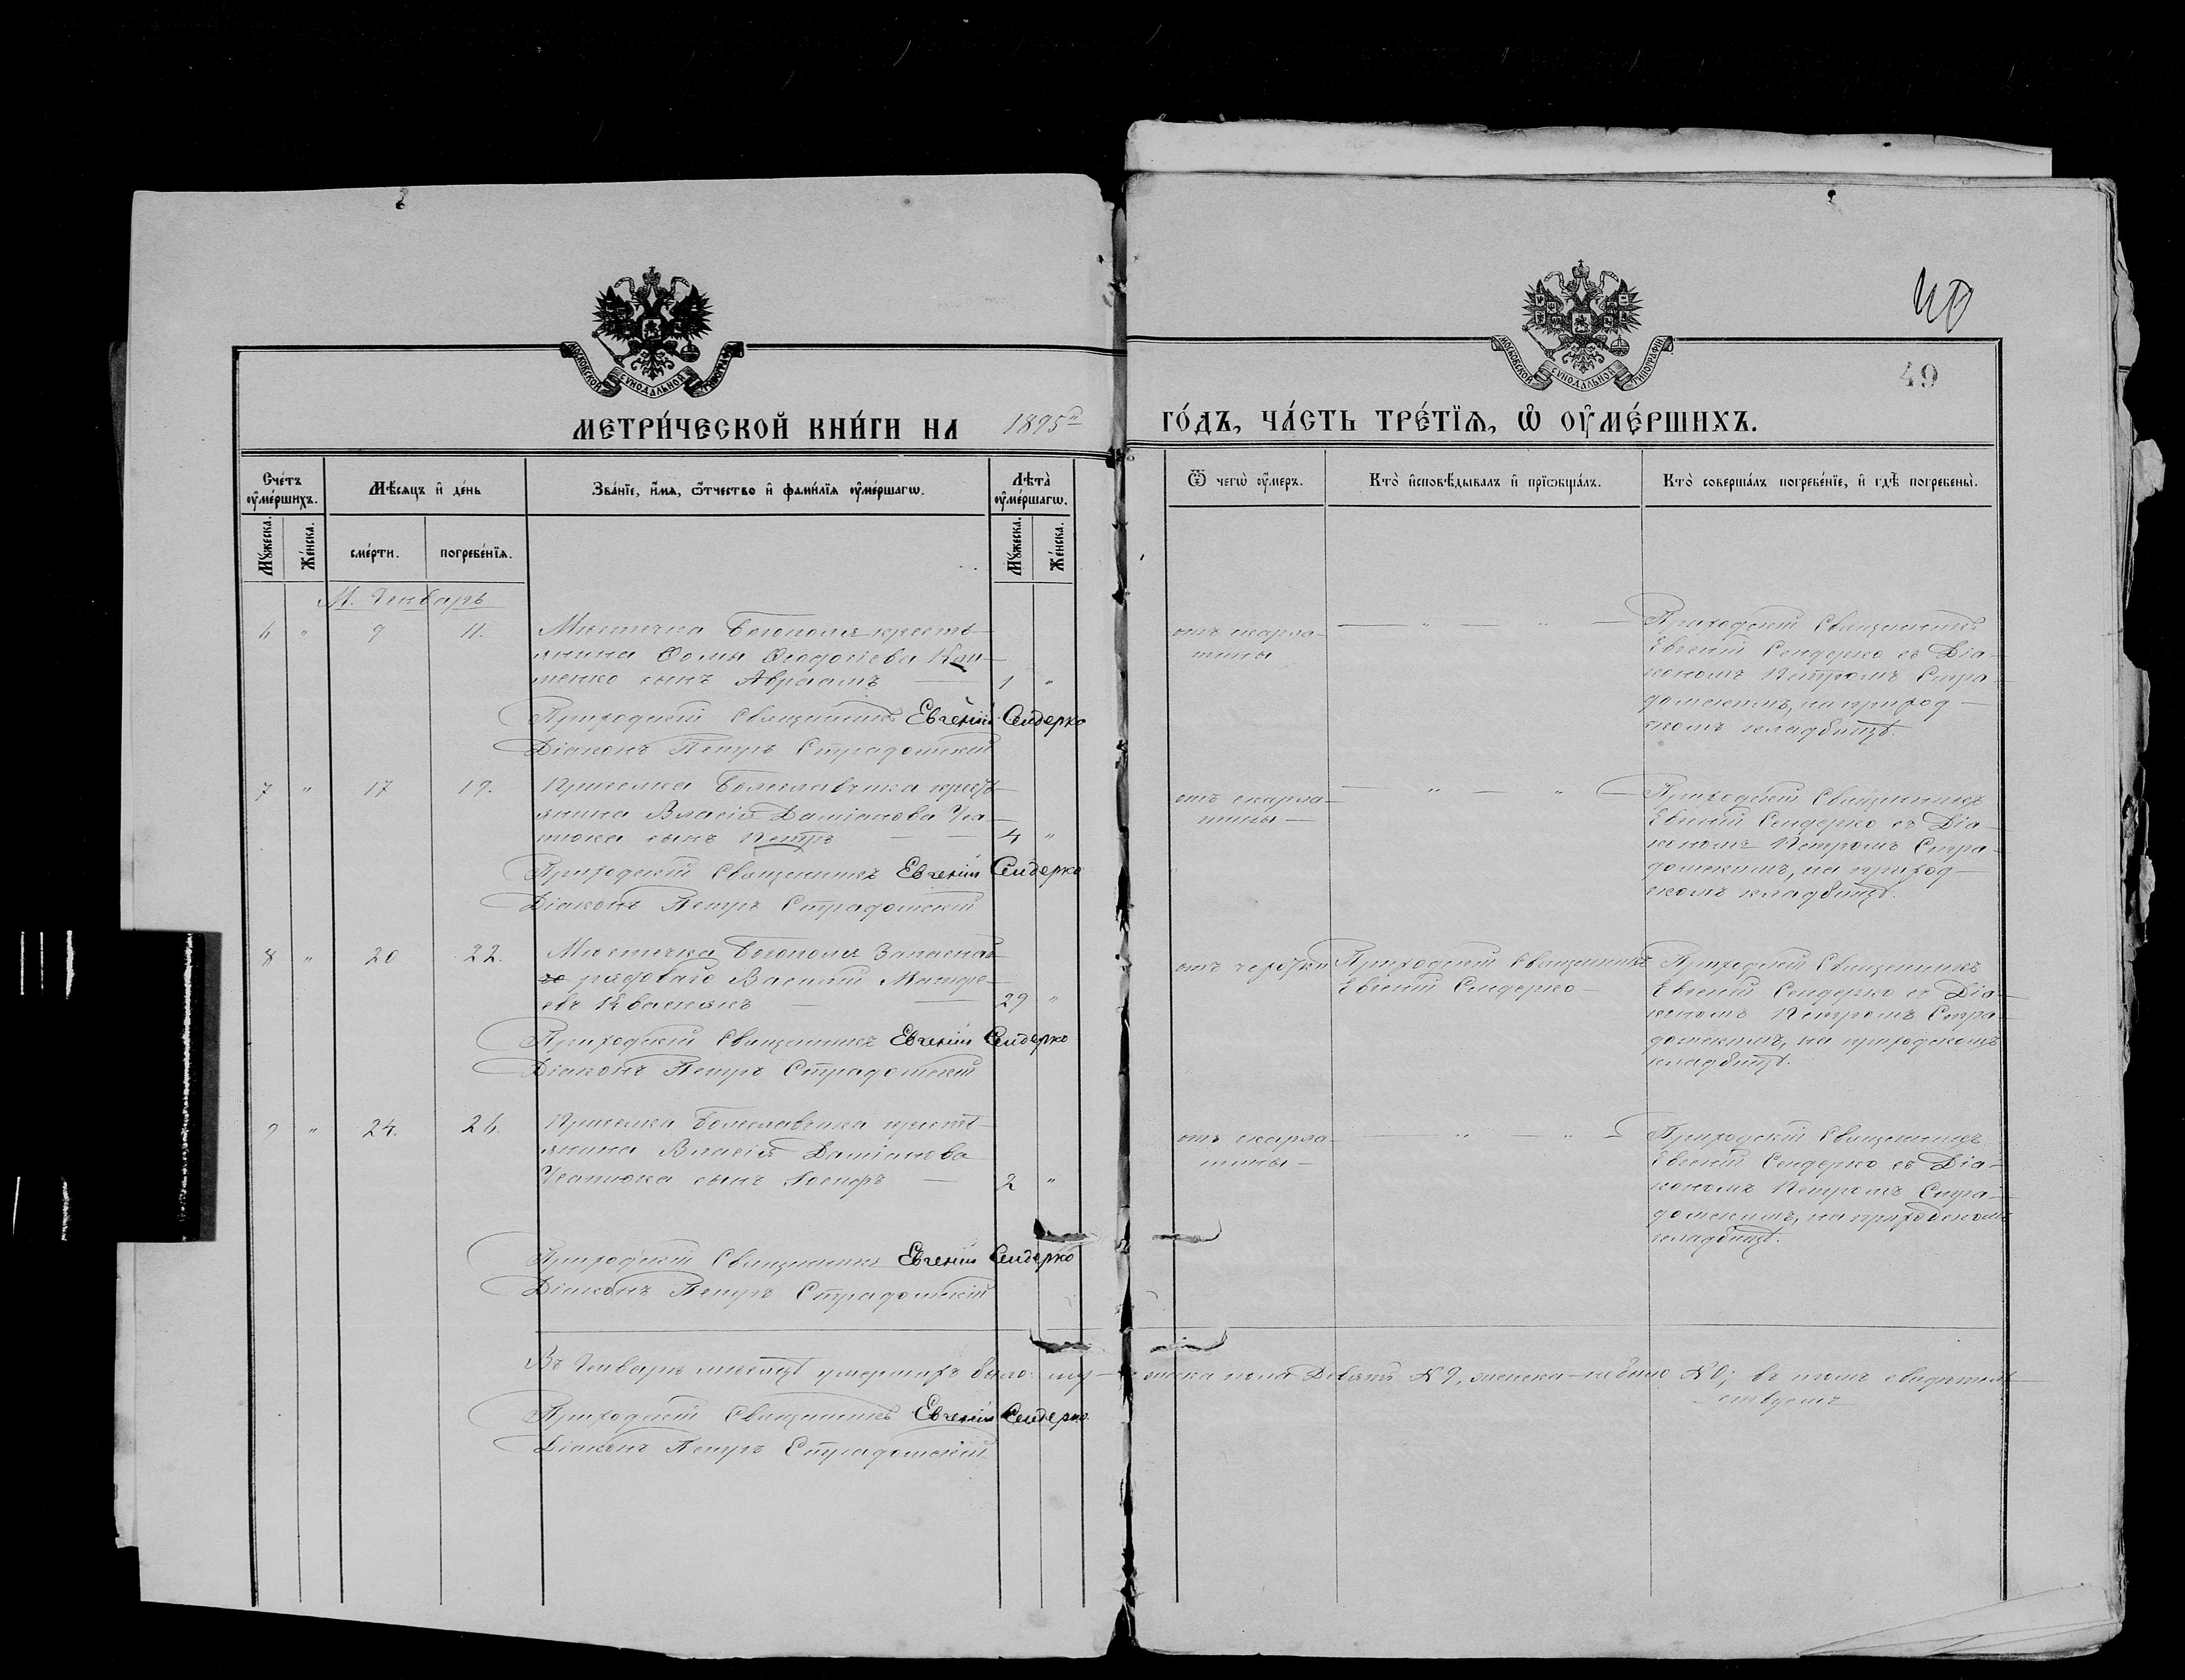 40
49
МОСКОВСКОЙ СУНОДАЛЬНОЙ ТИПОГРАФІИ
МОСКОВСКОЙ СУНОДАЛЬНОЙ ТИПОГРАФІИ
МЕТРИ́ЧЕСКОЙ КНИ́ГИ НА 1895й ГО́ДЪ, ЧА́СТЬ ТРЕ́ТІѦ, Ѡ҆ ОУ҆МЕ́РШИХЪ.
Сче́тъ оу҆ме́ршихъ.
Мѣ́сяцъ и҆ де́нь
Зва́нїе, и҆́мѧ, ѻ҆́тчество и҆ фами́лїѧ оу҆ме́ршагѡ.
Лѣта̀ оу҆ме́ршагѡ.
Ѿ чегѡ̀ оу҆́меръ.
Кто̀ и҆сповѣ́дывалъ и҆ прїѡбща́лъ.
Кто̀ соверша́лъ погребе́нїе, и҆ гдѣ̀ погребены̀.
Мꙋ́жеска. Же́нска. сме́рти. погребе́нїѧ. Мꙋ́жеска. Же́нска.
М. Генварь
6 " 9 11. Мѣстечка Богополя кресть-
янина Ѳомы Ѳеодосіева
менко сынъ Авраамъ — 1 "
Приходскій Священникъ Евгеній Сендерко
Діаконъ Петръ Страдомскій
отъ скарла-
тины
— " — " —
Приходскій Священникъ
Евгеній Сендерко съ Діа-
кономъ Петромъ Стра-
домскимъ, на приход-
скомъ кладбищѣ.
7 " 17 19. Приселка Болеславчика кресть-
янина Власія Даміанова
тюка сынъ Петръ — — 4 "
Приходскій Священникъ Евгеній Сендерко
Діаконъ Петръ Страдомскій
отъ скарла-
тины —
— " — " —
Приходскій Священникъ
Евгеній Сендерко съ Діа-
кономъ Петромъ Стра-
домскимъ, на приход-
скомъ кладбищѣ.
8 " 20 22. Мѣстечка Богополя Запасна-
го рядоваго Василій Матфе-
евъ Кваснякъ — — 29 "
Приходскій Священникъ Евгеній Сендерко
Діаконъ Петръ Страдомскій
отъ чахотки
Приходскій Священникъ
Евгеній Сендерко —
Приходскій Священникъ
Евгеній Сендерко съ Діа-
кономъ Петромъ Стра-
домскимъ, на приходскомъ
кладбищѣ.
9 " 24. 26. Приселка Болеславчика кресть-
янина Власія Даміанова
сынъ Іосифъ — 2 "
Приходскій Священникъ Евгеній Сендерко
Діаконъ Петръ Страдомскій
отъ скарла-
тины —
— " — " —
Приходскій Священникъ
Евгеній Сендерко съ Діа-
кономъ Петромъ Стра-
домскимъ, на приходскомъ
кладбищѣ.
Въ Генварѣ мѣсяцѣ умершихъ было: му-жеска пола Девять № 9, женска — не было № 0; въ томъ свидѣтель-
ствуемъ
Приходскій Священникъ Евгеній Сендерко.
Діаконъ Петръ Страдомскій